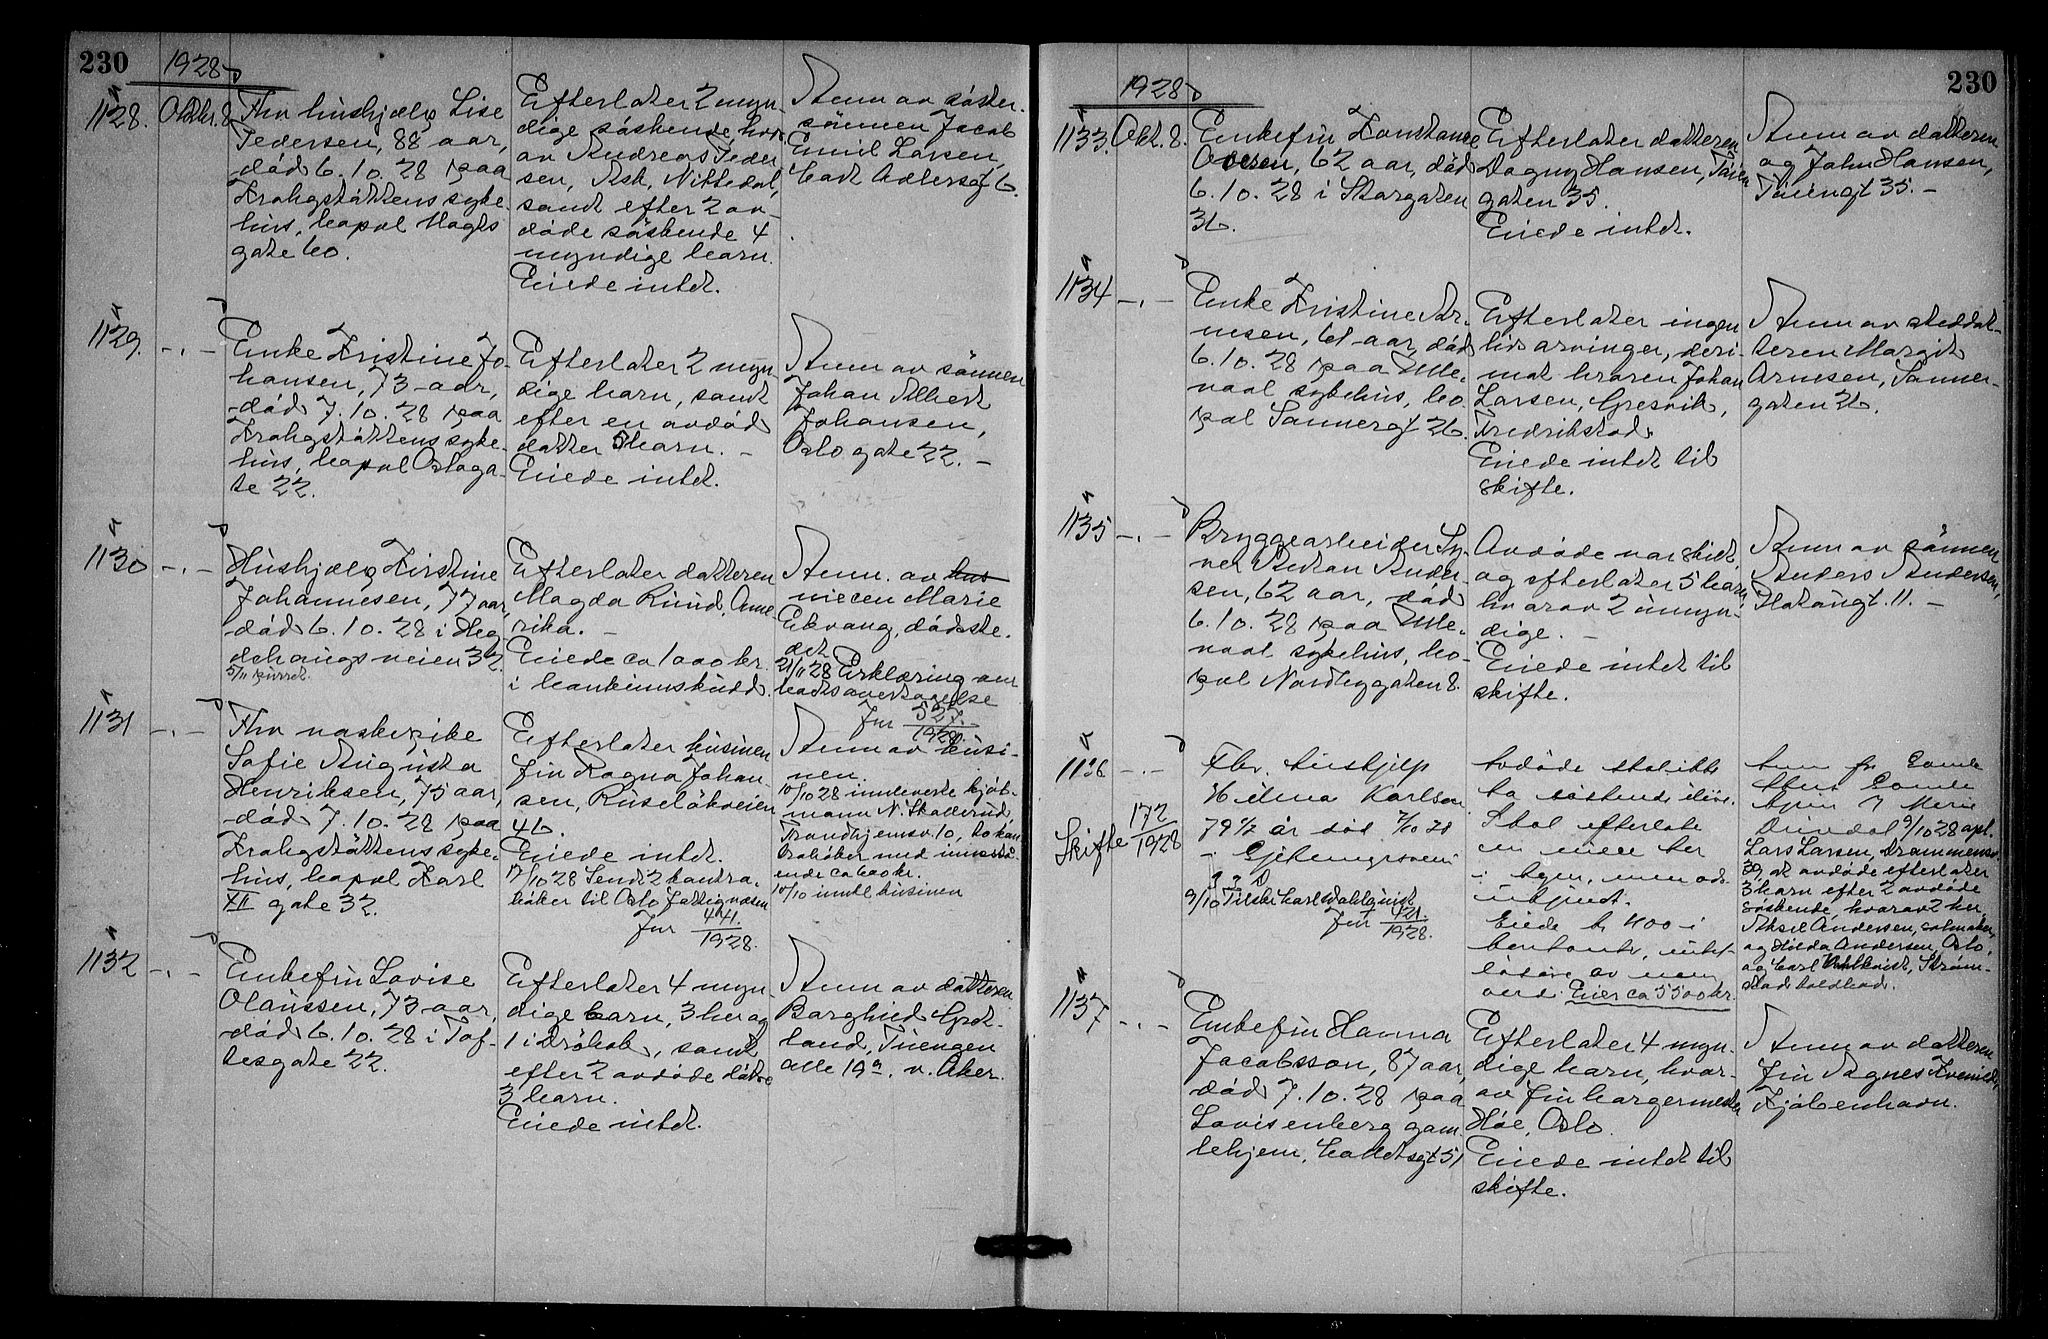 230
1928
1128. Oktbr. 8.
Fhv hushjælp Lise
Pedersen, 88 aar,
död 6.10.28 paa
Krohgstöttens syke-
hus, bopæl
gate 60.
Efterlater 2 myn-
dige söskende, hvor-
av Andreas Peder
sen, Ask, Nittedal,
samt efter 2 av-
döde söskende 4
myndige barn.
Eiede intet.
Anm av söster-
sönnen Jacob
Emil Larsen,
Carl Adlersgt 6.
1129. -.-
Enke Kristine Jo-
hansen, 73 aar,
död 7.10.28 paa
Krohgstöttens syke-
hus, bopæl Osloga-
te 22.
Efterlater 2 myn-
dige barn, samt
efter en avdöd
datter 5 barn. -
Eiede intet.
Anm av sönnen
Johan Albert
Johansen,
Oslo gate 22. -
1130 -.-
Hushjælp Kirstine
Johannesen, 77 aar,
död 6.10.28 i Heg-
dehaugsveien 32
5/11 purret.
Efterlater datteren
Magda Ruud, Ame-
rika. -
Eiede ca 1000 kr.
i bankinnskudd.
Anm. av hus
niecen Marie
Ekvang, dödste-
det
21/11 28 Erklæring om
boets overtagelse
Jnr 527/1928.
1131 -.-
Fhv vaskepike
Sofie Augusta
Henriksen, 75 aar,
död 7.10.28 paa
Krohgstöttens syke-
hus, bopæl Karl
XII gate 32.
Efterlater kusinen
fru Ragna Johan-
sen, Ruselökveien
46.
Eiede intet.
17/10 28 Sendt 2 kontra-
böker til Oslo Fattigvæsen
Jnr 441/1928.
Anm av kusi-
nen.
10/10 28 innleverte kjöb-
mann N. Skallerud,
Trondhjemsv. 10, to bankböker med innestå-
ende ca 600 kr.
10/10 innk kusinen
1132 -.-
Enkefru Lovise
Olaussen, 73 aar,
död 6.10.28 i Tof-
tesgate 22.
Efterlater 4 myn-
dige barn, 3 her og
1 i Dröbak, samt
efter 2 avdöde dötre
3 barn.
Eiede intet.
Anm av datteren
Borghild Grot-
land, Tuengen
alle 19a. v. Aker.
230
1928
1133. Okt. 8.
Enkefru Konstance
Oversen, 62 aar, död
6.10.28 i Storgaten
36.
Efterlater datteren
Dagny Hansen, Töien
gaten 35.
Eiede intet.
Anm av datteren
og John Hansen,
Töiengt 35. -
1134 -.-
Enke Kristine Ar-
nesen, 61 aar, död
6.10.28 paa Ulle-
vaal sykehus, bo-
pæl Sannergt 26.
Efterlater ingen
livsarvinger, deri-
mot broren Johan
Larsen, Gresvik,
Fredrikstad.
Eiede intet til
skifte.
Anm av steddat-
teren Margit
Arnesen, Sanner-
gaten 26.
1135 -.-
Bryggearbeider Sy-
ver Anton Ander-
sen, 62 aar, död
6.10.28 paa Ulle-
vaal sykehus, bo-
pæl Nordbygaten 8.
Avdöde var skilt
og efterlater 5 barn,
hvorav 2 umyn-
dige. -
Eiede intet til
skifte.
Anm av sönnen
Anders Andersen,
Hataugt. 11. -
1136 -.-
Skifte 172/1928
Fhv. hushjelp
Hilma Karlson
79 1/2 år död 7/10 28
i Gjetemyrsveien
9/10 Tilskr Carl Dahlquist
Jnr 421/1928.
Avdöde skal ikke
ha söskende ilive.
Skal efterlate
en niece her
i byen, men adr.
ubekjent.
Eiede kr 400 i
kontanter, intet
lösöre av nevn
verdi. Eier ca 5500 kr.
Anm fr Gamle
9/10 28 opl.
Lars Larsen, Drammensv
39, at avdöde efterlater
3 barn efter 2 avdöde
söskende, hvorav 2 her,
Aksel Andersen, salmaker,
og Hilda Andersen, Oslo,
og Carl Dahlkvist, Ström-
stad
1137 -.-
Enkefru Hanna
Jacobsson, 87 aar,
död 7.10.28 paa
Lovisenberg gam-
lehjem, Colletsgt 51
Efterlater 4 myn-
dige barn, hvor-
av fru borgermester
Höe, Oslo.
Eiede intet til
skifte.
Anm av datteren
fru Agnes
Kjöbenhavn.